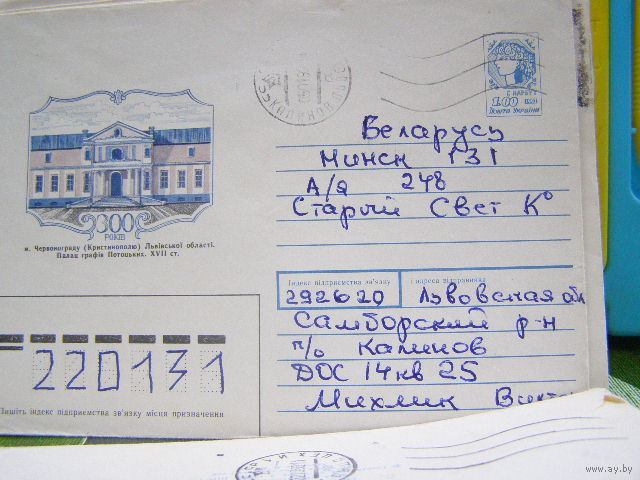 1.00
Пошта України
Беларусь
Минск 131
А/я 248
Старый Свет Ко
300
РОКІВ
м. Червонограду (Кристинополю) Львівської області.
Палац графів Потоцьких. XVII ст.
Індекс підприємства зв'язку і адреса відправника
292620 Львовская обл
Самборский р-н
п/о Калинов
ДОС 14 кв 25
Михлик
220131
Пишіть індекс підприємства зв'язку місця призначення
www.ay.by